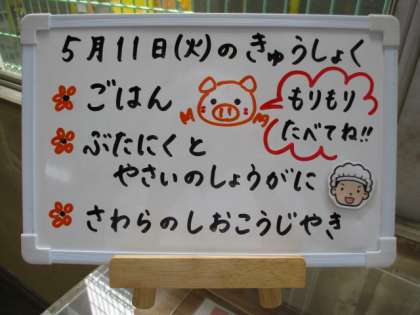 5月11日(火)のきゅうしょく
ごはん
もりもり
たべてね!!
ぶたにくと
やさいのしょうがに
さわらのしおこうじやき